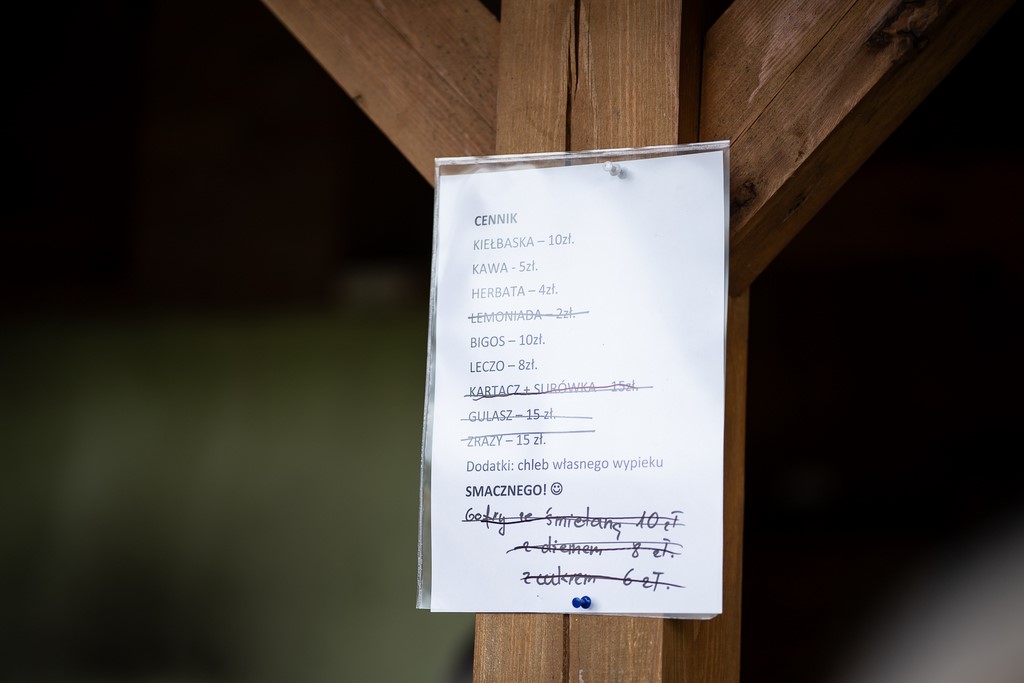 CENNIK
KIEŁBASKA – 10zł.
KAWA - 5zł.
HERBATA – 4zł.
LEMONIADA – 2zł.
BIGOS – 10zł.
LECZO – 8zł.
KARTACZ + SURÓWKA – 15zł.
GULASZ – 15 zł.
ZRAZY – 15 zł.
Dodatki: chleb własnego wypieku
SMACZNEGO! ☺
Gofry ze śmietaną 10 zł
z dżemem 8 zł.
z cukrem 6 zł.